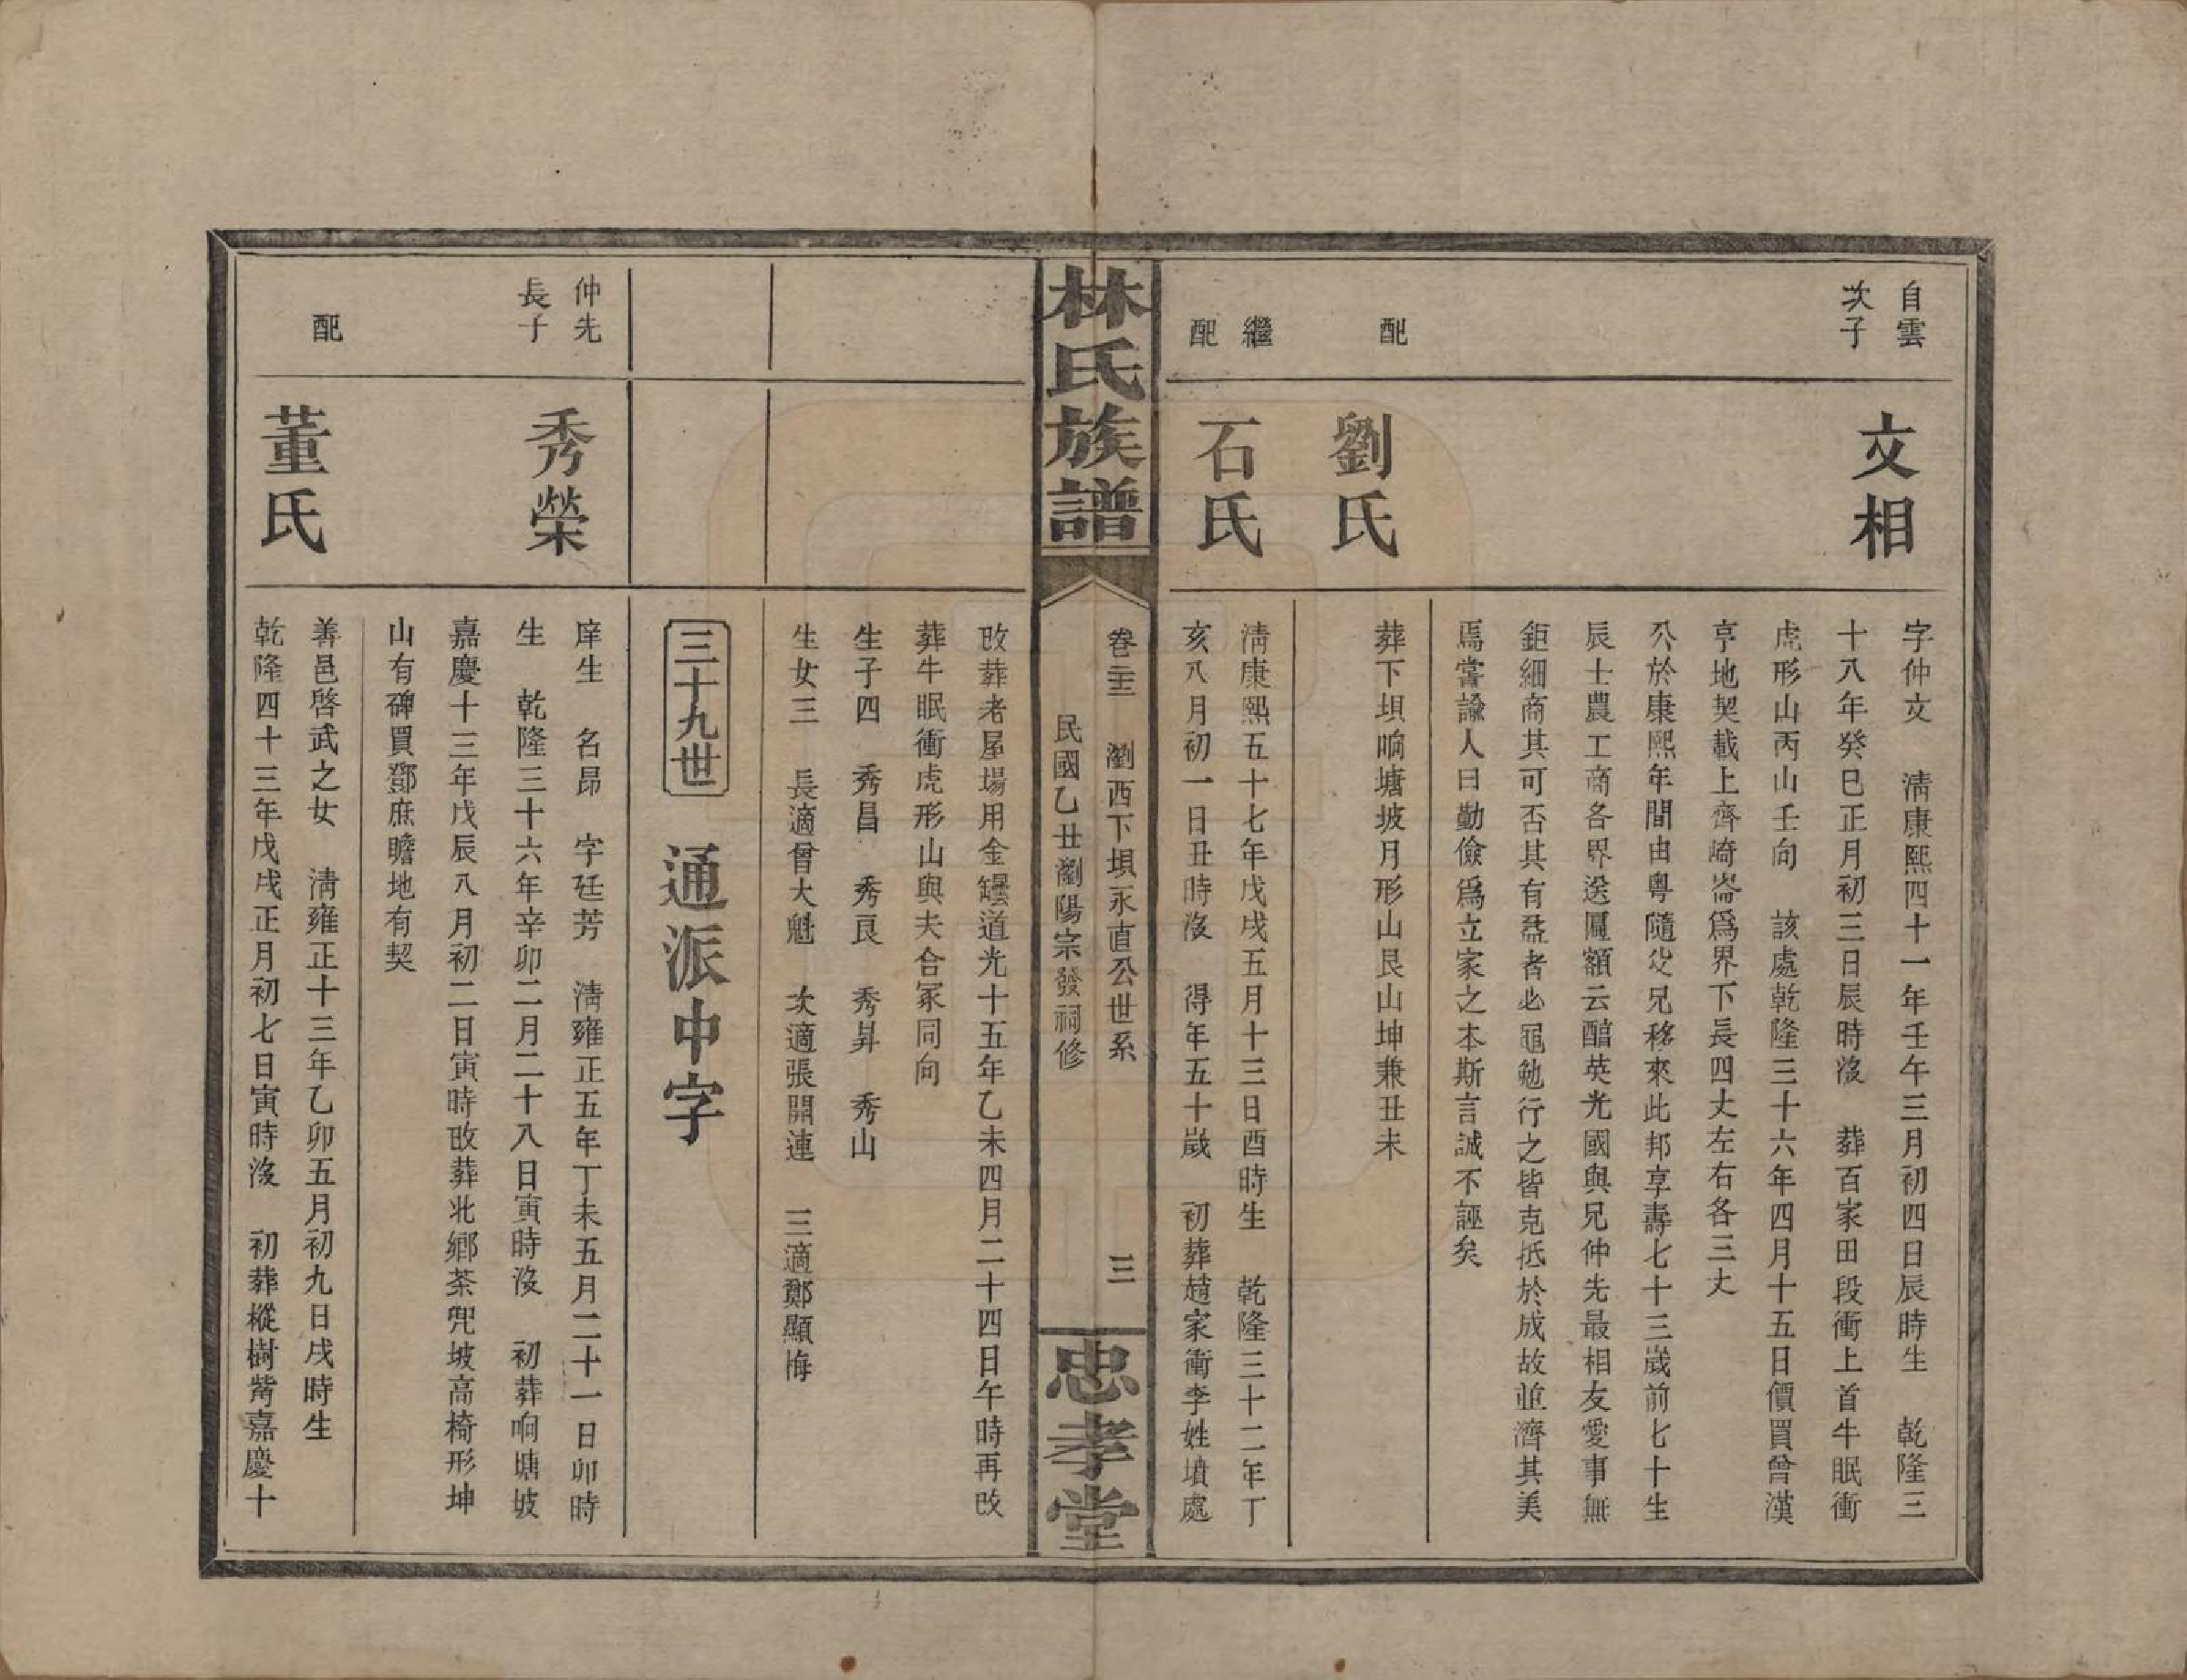 自雲
次子
文相
字仲文　淸康熙四十一年壬午三月初四日辰時生　乾隆三
十八年癸巳正月初三日辰時沒　葬百家田段衝上首牛眠衝
虎形山丙山壬向　該處乾隆三十六年四月十五日價買曾漢
亨地契載上齊崎崙爲界下長四丈左右各三丈
公於康熙年間由粵隨父兄移來此邦享壽七十三歲前七十生
辰士農工商各界送匾額云醕英光國與兄仲先最相友愛事無
鉅細商其可否其有益者必黽勉行之皆克抵於成故並濟其美
焉嘗諭人曰勤儉爲立家之本斯言誠不誣矣
配
劉氏
葬下垻响塘坡月形山艮山坤兼丑未
繼
配
石氏
淸康熙五十七年戊戌五月十三日酉時生　乾隆三十二年丁
亥八月初一日丑時沒　得年五十歲　初葬趙家衝李姓墳處
林氏族譜
卷二十三　瀏西下垻永直公世系　三
民國乙丑瀏陽宗發祠修
忠孝堂
改葬老屋場用金罐道光十五年乙未四月二十四日午時再改
葬牛眠衝虎形山與夫合冢同向
生子四　秀昌　秀良　秀昇　秀山
生女三　長適曾大魁　次適張開連　三適鄭顯梅
三十九世　通派中字
仲先
長子
秀榮
庠生　名昂　字廷芳　淸雍正五年丁未五月二十一日卯時
生　乾隆三十六年辛卯二月二十八日寅時沒　初葬响塘坡
嘉慶十三年戊辰八月初二日寅時改葬北鄉茶兜坡高椅形坤
山有碑買鄧庶瞻地有契
配
董氏
善邑啓武之女　淸雍正十三年乙卯五月初九日戌時生
乾隆四十三年戊戌正月初七日寅時沒　初葬樅樹嘴嘉慶十